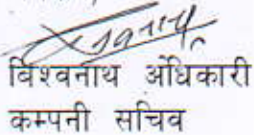 विश्वनाथ अधिकारी
कम्पनी सचिव